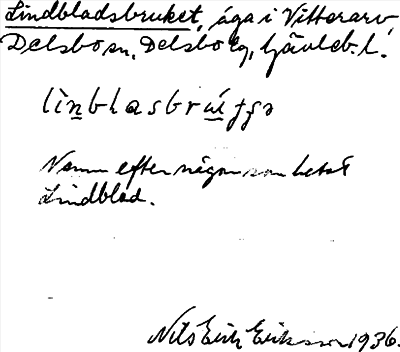 Lindbladsbruket, äga i Vitterarv
Delsbo sn, Delsbo lg, Gävleb. l.
Namn efter någon som hetat
Lindblad.
Nils Erik Eriksson 1936.